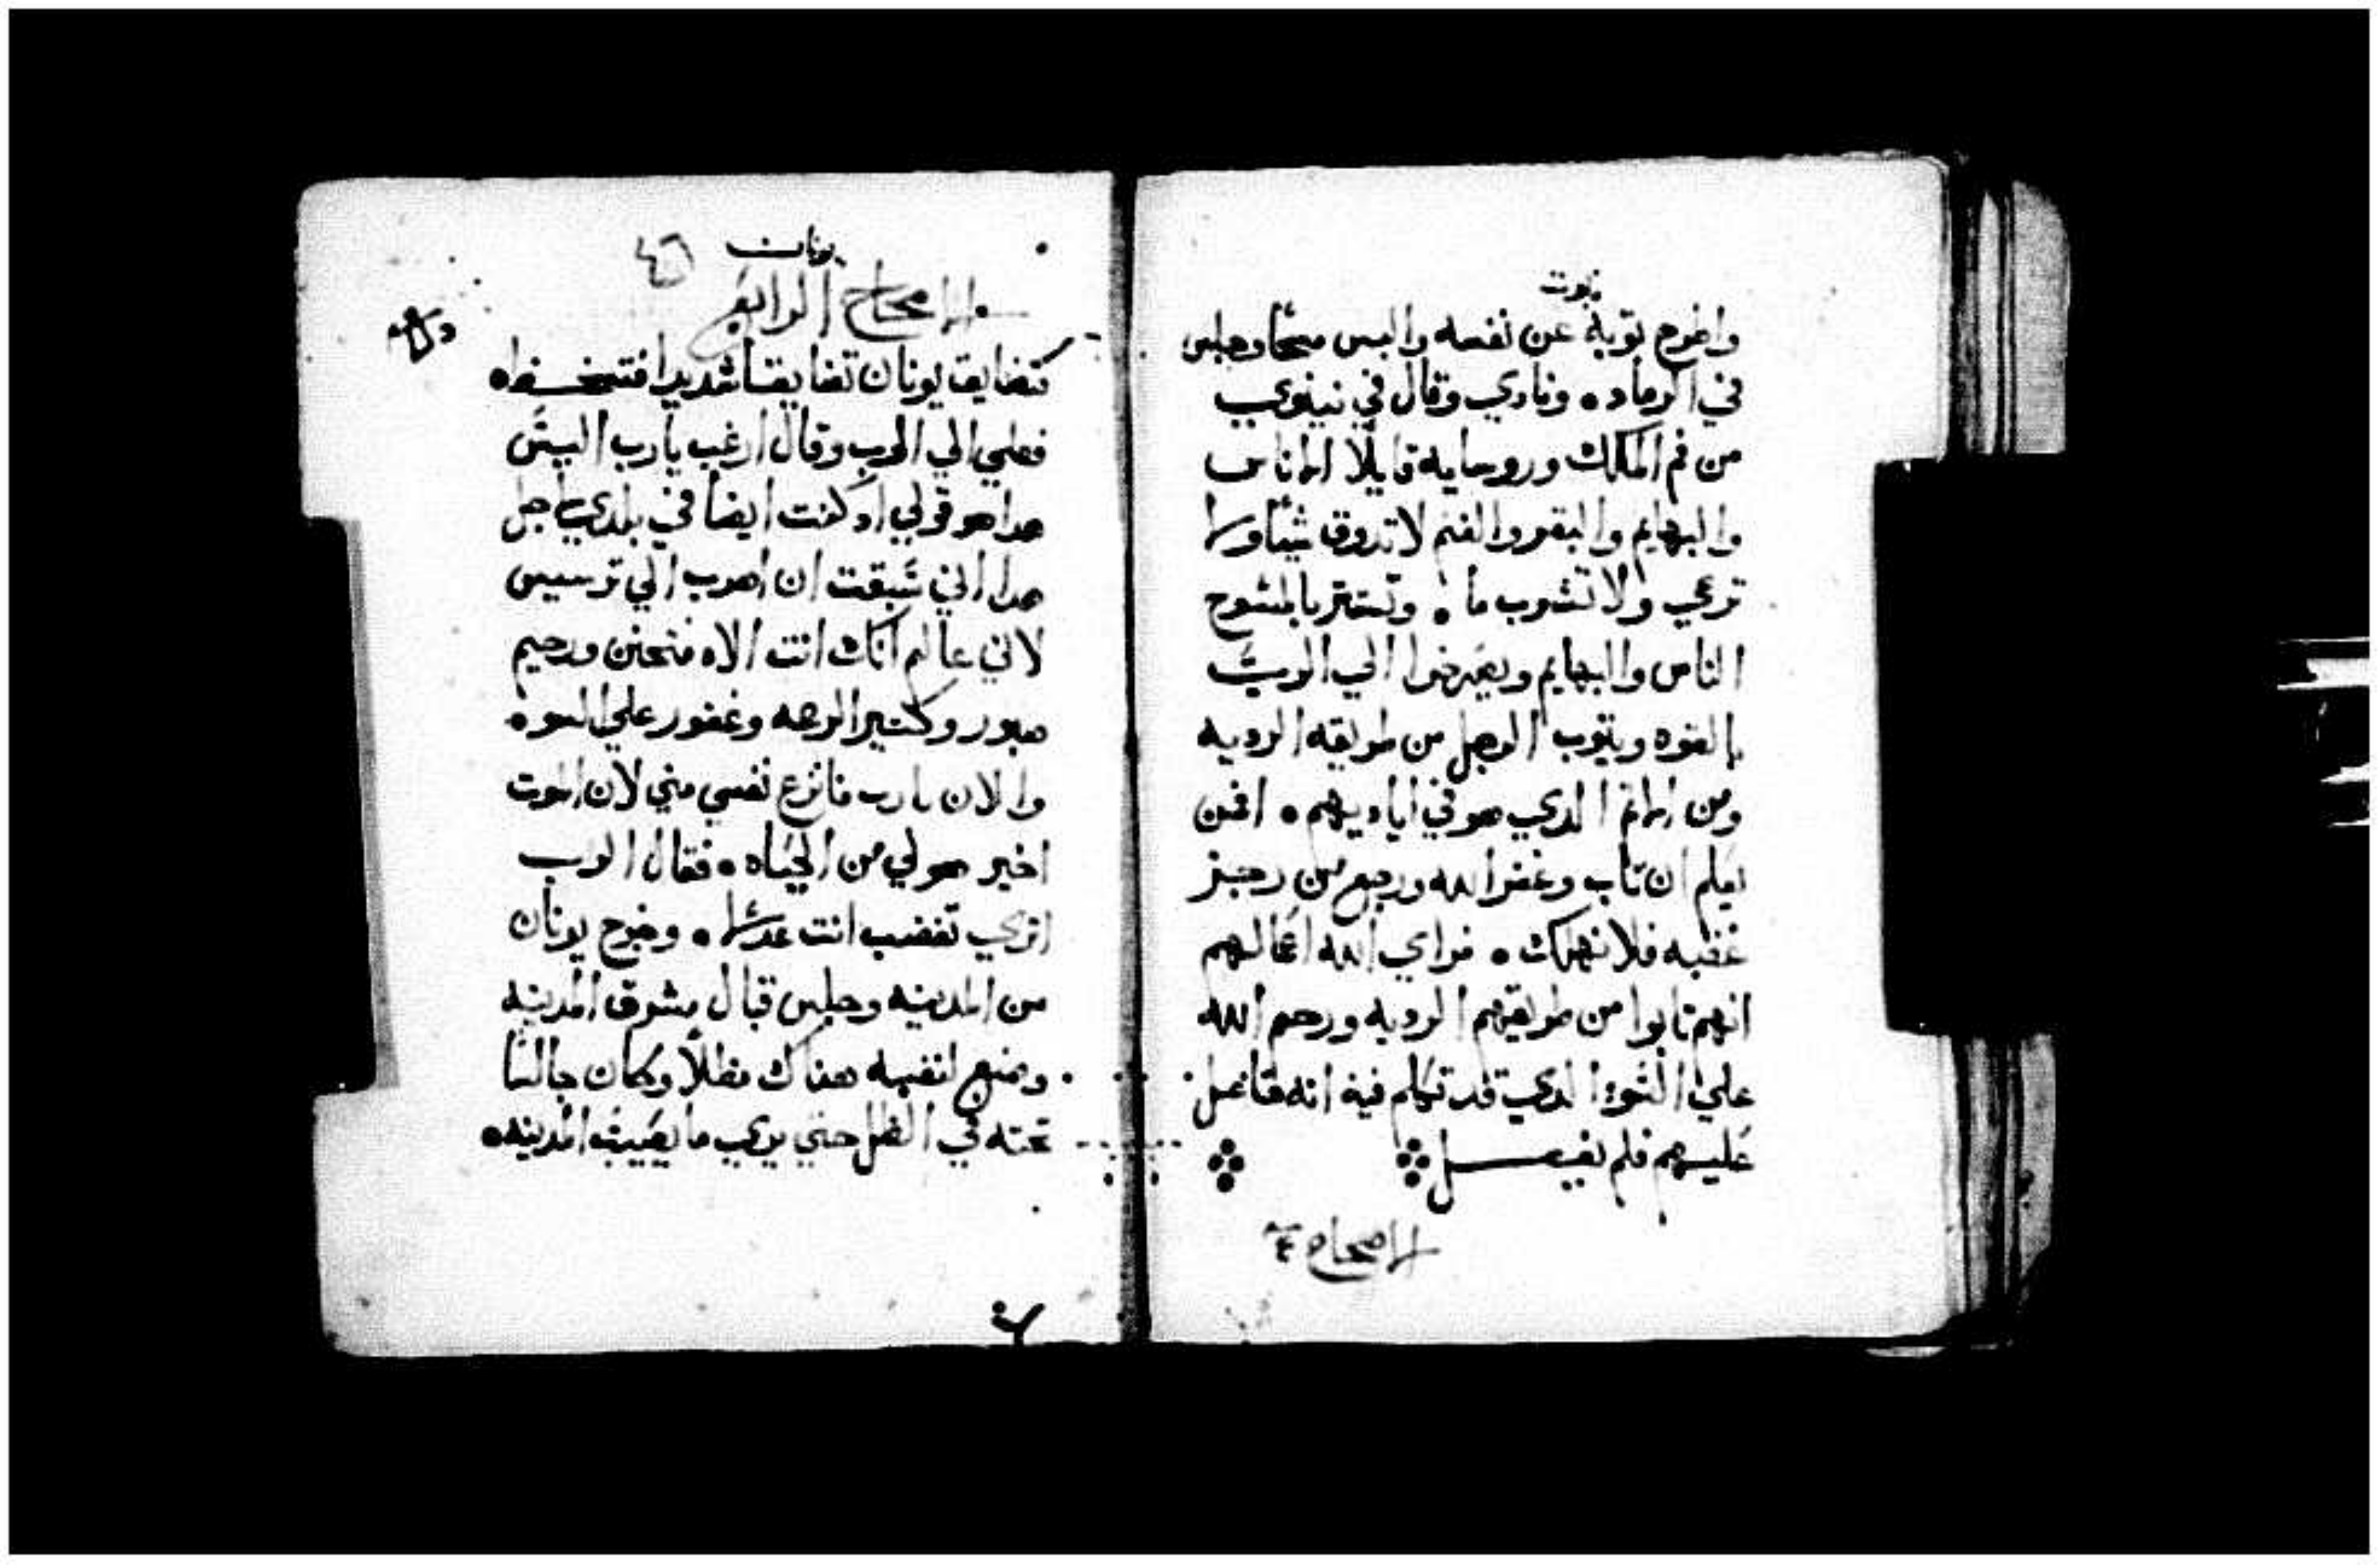 نبوت
واطرح توبه عن نفسه والبس مسحا وجلس
في الرماد ٠ ونادي وقال في نينوي
من فم الملك وروسايه قايلا الاناس
والبهايم والبقر والغنم لا تدوق شيا ولا
ترعي ولا تشرب ما ٠ وتستتر بالمسوح
الناس والبهايم ويصرخوا الي الرب
بالقوه ويتوب الرجل من طريقه الرديه
ومن الاتم الدي هو في اياديهم ٠ افمن
يعلم ان تاب وغفر الله ورجع من رجز
غضبه فلا نهلك ٠ فراي الله اعمالهم
انهم تابوا من طريقهم الرديه ورحم الله
علي السوء الدي قد تكلم فيه انه فاعل
عليهم فلم يفعل
الاصحاح ٤
يونان
٤٦
الاصحاح الرابع
فتضايق يونان تضايقا شديدا فتسخط ٠
فصلي الي الرب وقال ارغب يارب اليس
هدا هو قولي اد كنت ايضا في بلدي لاجل
هدا اني سبقت ان اهرب الي ترسيس
لاني عالم انك انت الاه متحنن ورحيم
صبور وكتير الرحمه وغفور علي السوء
والان يارب فانزع نفسي مني لان الموت
اخير هو لي من الحياه ٠ فقال الرب
اتري تغضب انت ٠ وخرج يونان
من المدينه وجلس قبال مشرق المدينه
وصنع لنفسه هناك مظلا وكان جالسا
تحته في الظل حتي يري ما يصيب المدينه ٠